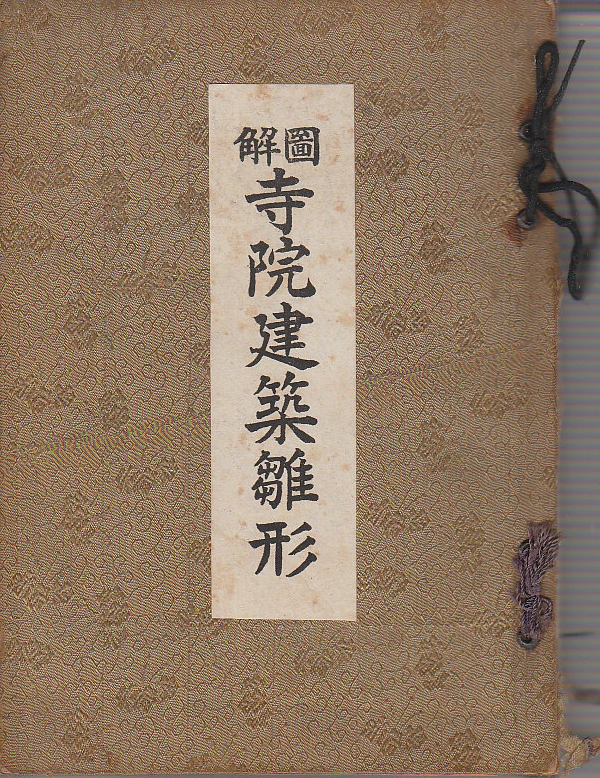 圖解
寺院建築雛形